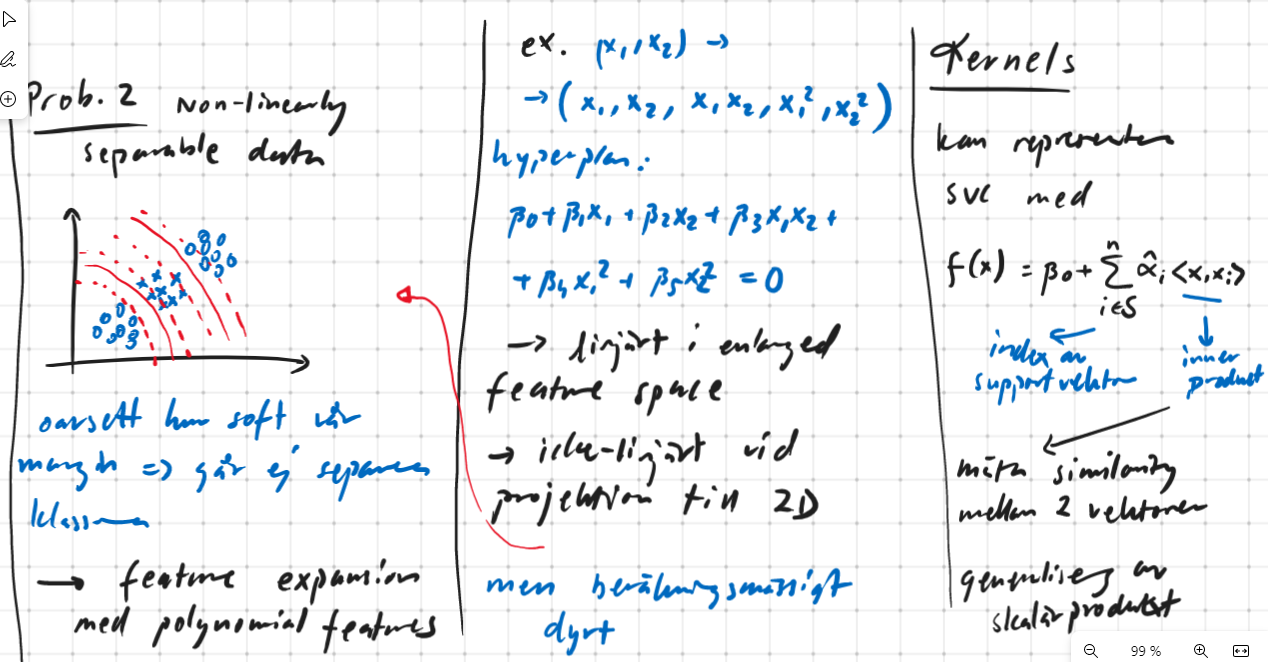 Prob. 2 Non-linearly
separable data
oavsett hur soft vår
margin => går ej separera
klasserna
→ feature expansion
med polynomial features
ex. (x₁, x₂) →
→ (x₁, x₂, x₁x₂, x₁², x₂²)
hyperplan:
β₀ + β₁x₁ + β₂x₂ + β₃x₁x₂ +
+ β₄x₁² + β₅x₂² = 0
→ linjärt i enlarged
feature space
→ icke-linjärt vid
projektion till 2D
men beräkningsmässigt
dyrt
Kernels
kan representera
SVC med
f(x) = β₀ + Σ α̂ᵢ <x, xᵢ>
n
i∈S
index av
support vektor
inner
product
mäta similarity
mellan 2 vektorer
generalisering av
skalärprodukt
99 %